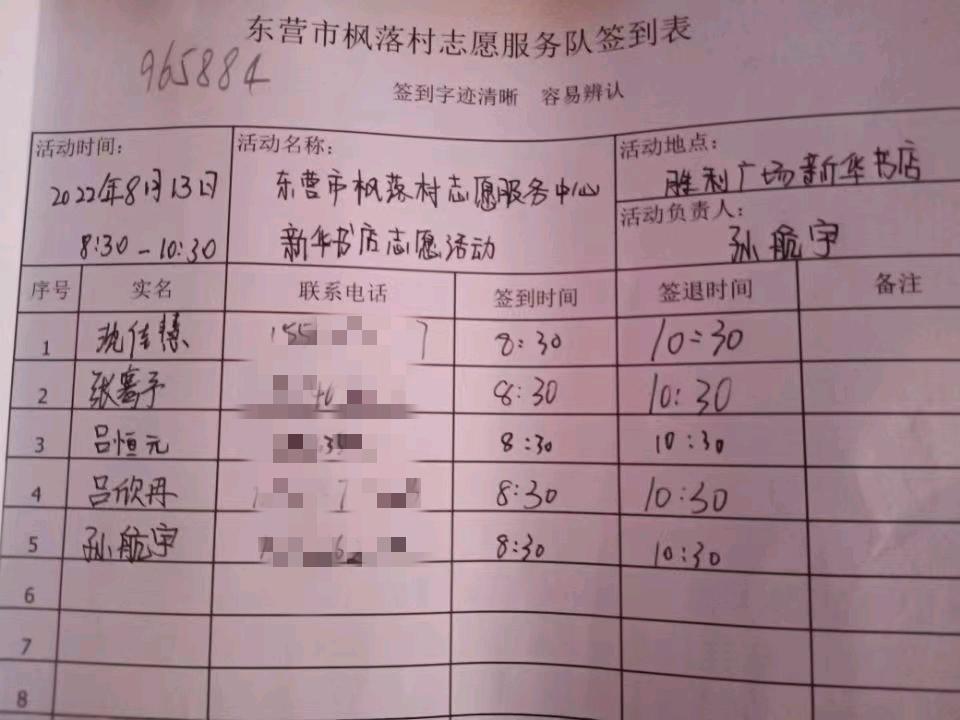 东营市枫落村志愿服务队签到表
965884
签到字迹清晰 容易辨认
活动时间:
2022年8月13日
8:30-10:30
活动名称:
东营市枫落村志愿服务中心
新华书店志愿活动
活动地点:
胜利广场新华书店
活动负责人:
孙航宇
序号 实名 联系电话 签到时间 签退时间 备注
1 8:30 10:30
2 8:30 10:30
3 吕恒元 8:30 10:30
4 吕欣冉 8:30 10:30
5 孙航宇 8:30 10:30
6
7
8